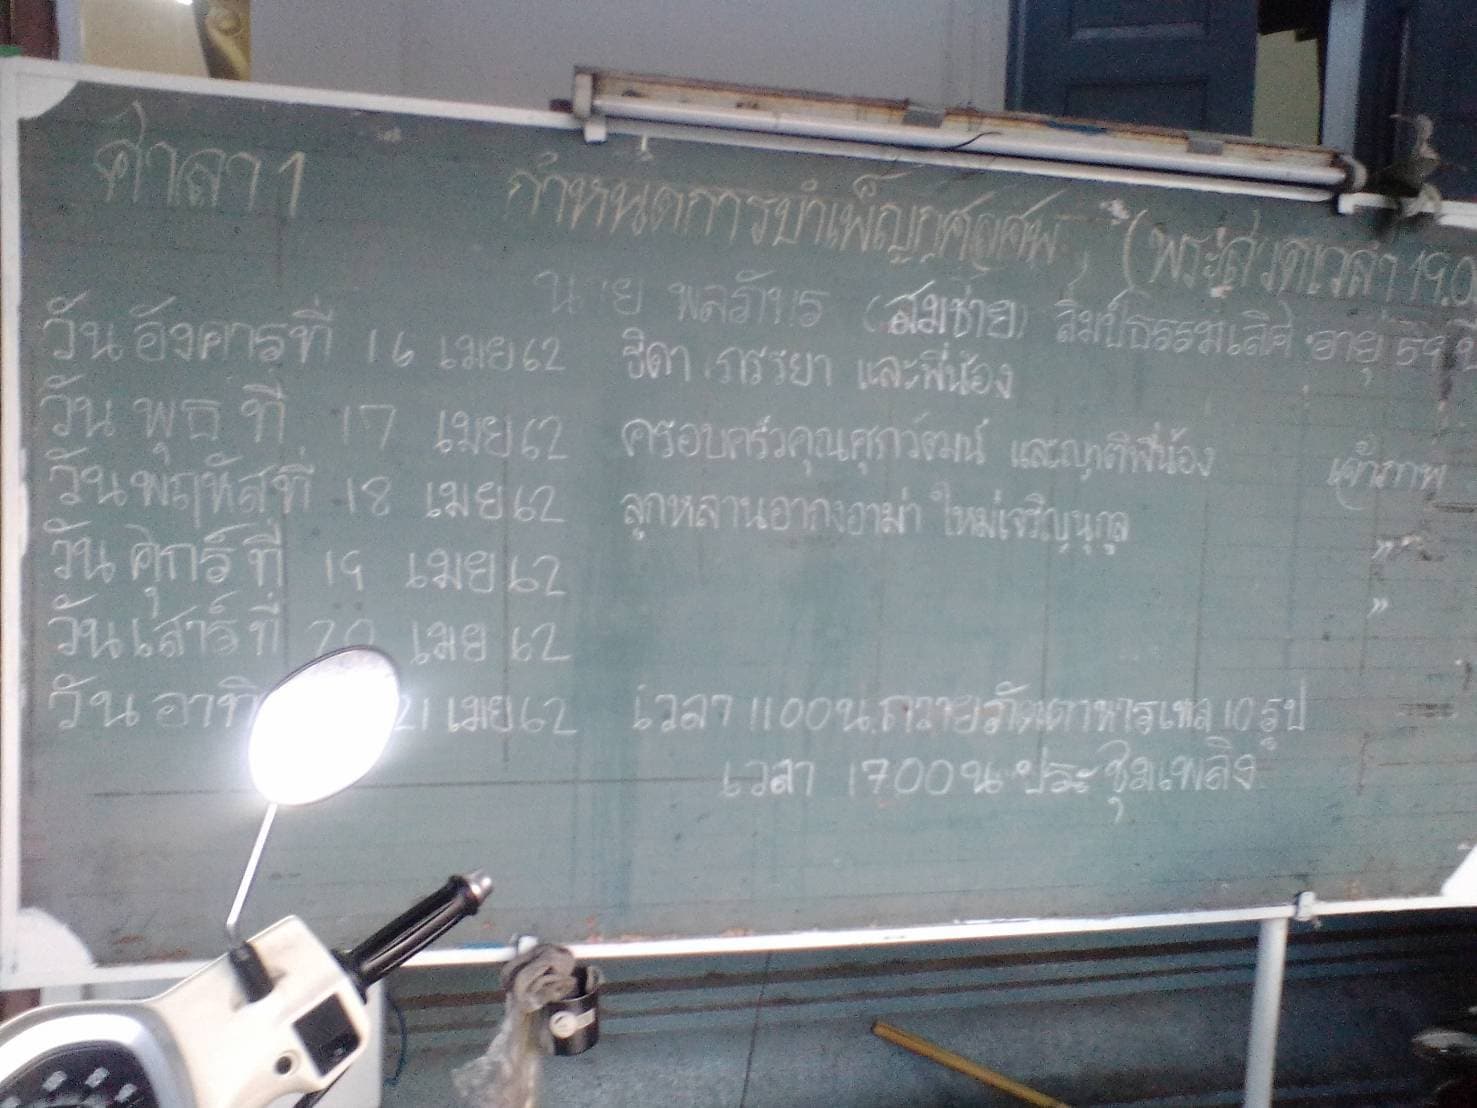 ศาลา 1 กำหนดการบำเพ็ญกุศลศพ (พระสวดเวลา 19.0
นาย พลภัทร (สมชาย) ลิมป์ธรรมเลิศ อายุ 59 ปี
วันอังคารที่ 16 เมย 62 ธิดา ภรรยา และพี่น้อง
วันพุธ ที่ 17 เมย 62 ครอบครัวคุณศุภวัฒน์ และญาติพี่น้อง เจ้าภาพ
วันพฤหัสที่ 18 เมย 62 ลูกหลานอากงอาม่า ใหม่เจริญนุกูล "
วันศุกร์ ที่ 19 เมย 62 "
วันเสาร์ ที่ 20 เมย 62
วันอาทิ 21 เมย 62 เวลา 1100 น. ถวายภัตตาหารเพล 10 รูป
เวลา 1700 น ประชุมเพลิง